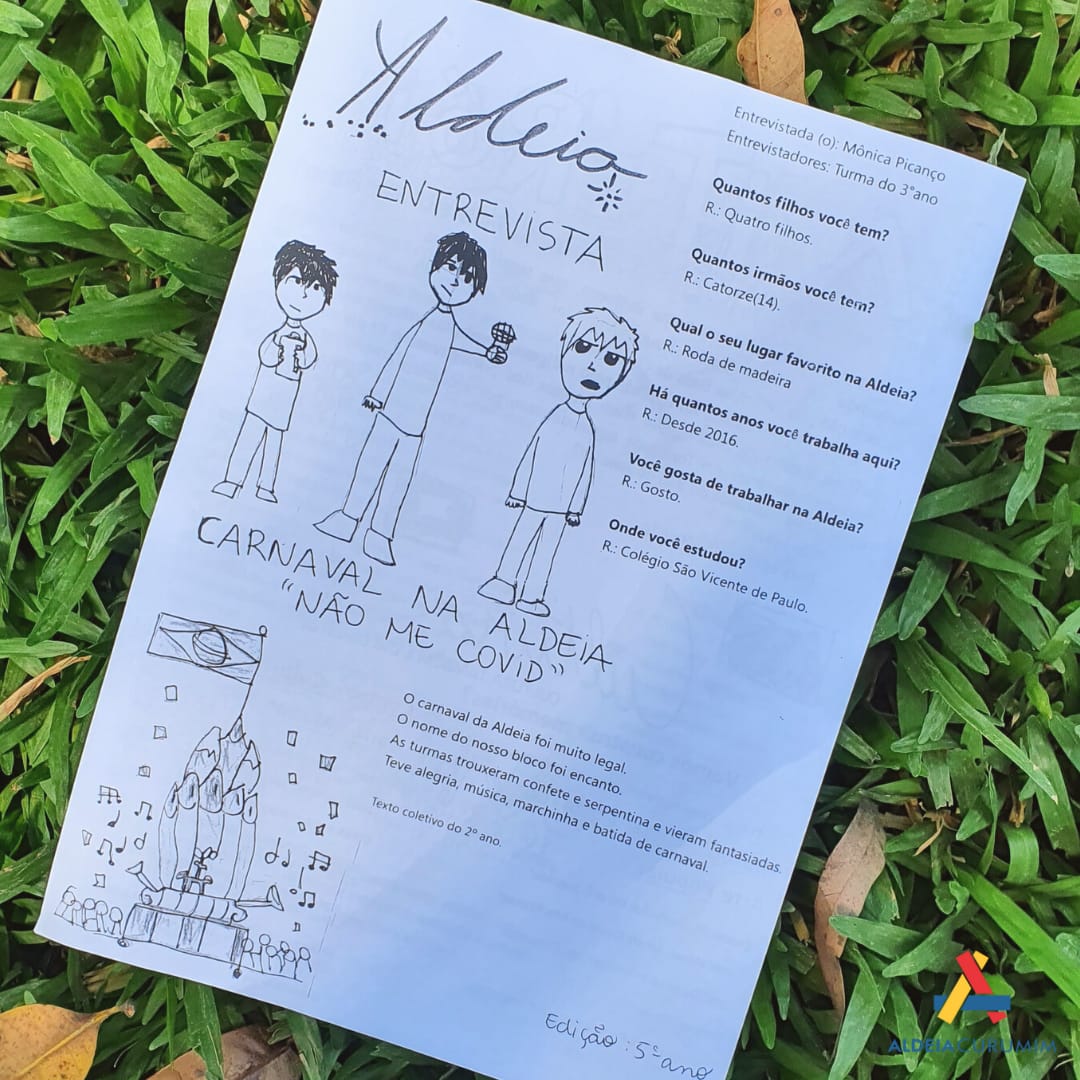 Aldeia
ENTREVISTA
Entrevistada (o): Mônica Picanço
Entrevistadores: Turma do 3°ano
Quantos filhos você tem?
R.: Quatro filhos.
Quantos irmãos você tem?
R.: Catorze(14).
Qual o seu lugar favorito na Aldeia?
R.: Roda de madeira
Há quantos anos você trabalha aqui?
R.: Desde 2016.
Você gosta de trabalhar na Aldeia?
R.: Gosto.
Onde você estudou?
R.: Colégio São Vicente de Paulo.
CARNAVAL NA ALDEIA
"NÃO ME COVID"
O carnaval da Aldeia foi muito legal.
O nome do nosso bloco foi encanto.
As turmas trouxeram confete e serpentina e vieram fantasiadas.
Teve alegria, música, marchinha e batida de carnaval.
Texto coletivo do 2º ano.
Edição: 5º ano
ALDEIACURUMIM